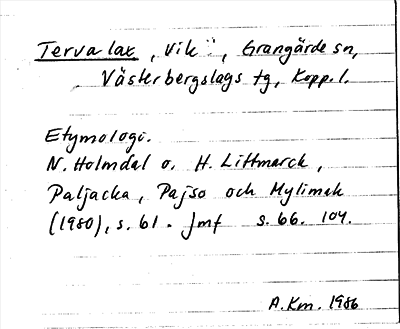 Tervalax, Vik, Grangärde sn,
Västerbergslags tg, Kopp. l.
Etymologi.
N. Holmdal o. H. Littmarck,
Paljacka, Pajso och Mylimak
(1980), s. 61. Jmf s. 66. 104.
A.Km. 1986